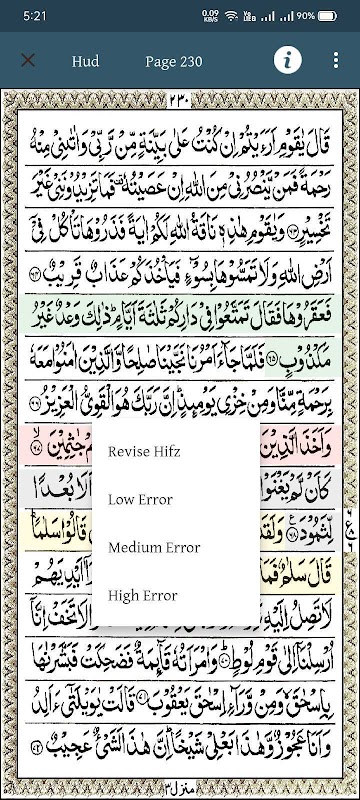 5:21
0.09 KB/S
90%
Hud
Page 230
٢٣٠
قَالَ يٰقَوْمِ اَرَءَيْتُمْ اِنْ كُنْتُ عَلٰى بَيِّنَةٍ مِّنْ رَّبِّىْ وَاٰتٰىنِىْ مِنْهُ
رَحْمَةً فَمَنْ يَّنْصُرُنِىْ مِنَ اللّٰهِ اِنْ عَصَيْتُهٗ فَمَا تَزِيْدُوْنَنِىْ غَيْرَ
تَخْسِيْرٍ ٦٣ وَيٰقَوْمِ هٰذِهٖ نَاقَةُ اللّٰهِ لَكُمْ اٰيَةً فَذَرُوْهَا تَاْكُلْ فِىْٓ
اَرْضِ اللّٰهِ وَلَا تَمَسُّوْهَا بِسُوْٓءٍ فَيَاْخُذَكُمْ عَذَابٌ قَرِيْبٌ ٦٤
فَعَقَرُوْهَا فَقَالَ تَمَتَّعُوْا فِىْ دَارِكُمْ ثَلٰثَةَ اَيَّامٍ ذٰلِكَ وَعْدٌ غَيْرُ
مَكْذُوْبٍ ٦٥ فَلَمَّا جَآءَ اَمْرُنَا نَجَّيْنَا صٰلِحًا وَّالَّذِيْنَ اٰمَنُوْا مَعَهٗ
بِرَحْمَةٍ مِّنَّا وَمِنْ خِزْىِ يَوْمِئِذٍ اِنَّ رَبَّكَ هُوَ الْقَوِىُّ الْعَزِيْزُ ٦٦
وَاَخَذَ الَّذِيْنَ جٰثِمِيْنَ ٦٧
كَاَنْ لَّمْ يَغْنَوْا اَلَا بُعْدًا
لِّثَمُوْدَ ٦٨ وَلَقَدْ قَالُوْا سَلٰمًا
قَالَ سَلٰمٌ فَمَا اَيْدِيَهُمْ
لَا تَصِلُ اِلَيْهِ لَا تَخَفْ اِنَّآ
اُرْسِلْنَآ اِلٰى قَوْمِ لُوْطٍ ٧٠ وَامْرَاَتُهٗ قَآئِمَةٌ فَضَحِكَتْ فَبَشَّرْنٰهَا
بِاِسْحٰقَ وَمِنْ وَّرَآءِ اِسْحٰقَ يَعْقُوْبَ ٧١ قَالَتْ يٰوَيْلَتٰٓى ءَاَلِدُ
وَاَنَا عَجُوْزٌ وَّهٰذَا بَعْلِىْ شَيْخًا اِنَّ هٰذَا لَشَىْءٌ عَجِيْبٌ ٧٢
منزل ٣
Revise Hifz
Low Error
Medium Error
High Error